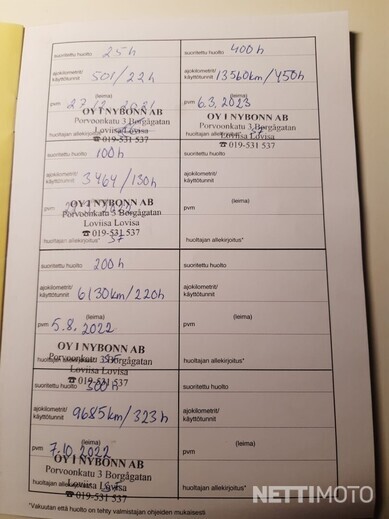 suoritettu huolto 25h
ajokilometrit/
käyttötunnit 501/22h
(leima)
pvm 27.12.
OY I NYBONN AB
Porvoonkatu 3 Borgågatan
Loviisa Lovisa
huoltajan allekirjoitus*
☎ 019-531 537
suoritettu huolto 100h
ajokilometrit/
käyttötunnit 3464/130h
(leima)
pvm
OY I NYBONN AB
Porvoonkatu 3 Borgågatan
Loviisa Lovisa
☎ 019-531 537
huoltajan allekirjoitus*
suoritettu huolto 200h
ajokilometrit/
käyttötunnit 6130km/220h
(leima)
pvm 5.8.2022
OY I NYBONN AB
huoltajan allekirjoitus*
Porvoonkatu 3 Borgågatan
Loviisa Lovisa
☎ 019-531 537
suoritettu huolto 300h
ajokilometrit/
käyttötunnit 9685km/323h
(leima)
pvm 7.10.2022
OY I NYBONN AB
Porvoonkatu 3 Borgågatan
Loviisa Lovisa
huoltajan allekirjoitus*
☎ 019-531 537
suoritettu huolto 400h
ajokilometrit/
käyttötunnit 13560km/450h
(leima)
pvm 6.3.2023
OY I NYBONN AB
Porvoonkatu 3 Borgågatan
huoltajan allekirjoitus*
Loviisa Lovisa
☎ 019-531 537
suoritettu huolto
ajokilometrit/
käyttötunnit
(leima)
pvm
huoltajan allekirjoitus*
suoritettu huolto
ajokilometrit/
käyttötunnit
(leima)
pvm
huoltajan allekirjoitus*
suoritettu huolto
ajokilometrit/
käyttötunnit
(leima)
pvm
huoltajan allekirjoitus*
*Vakuutan että huolto on tehty valmistajan ohjeiden mukaisesti
NETTIMOTO